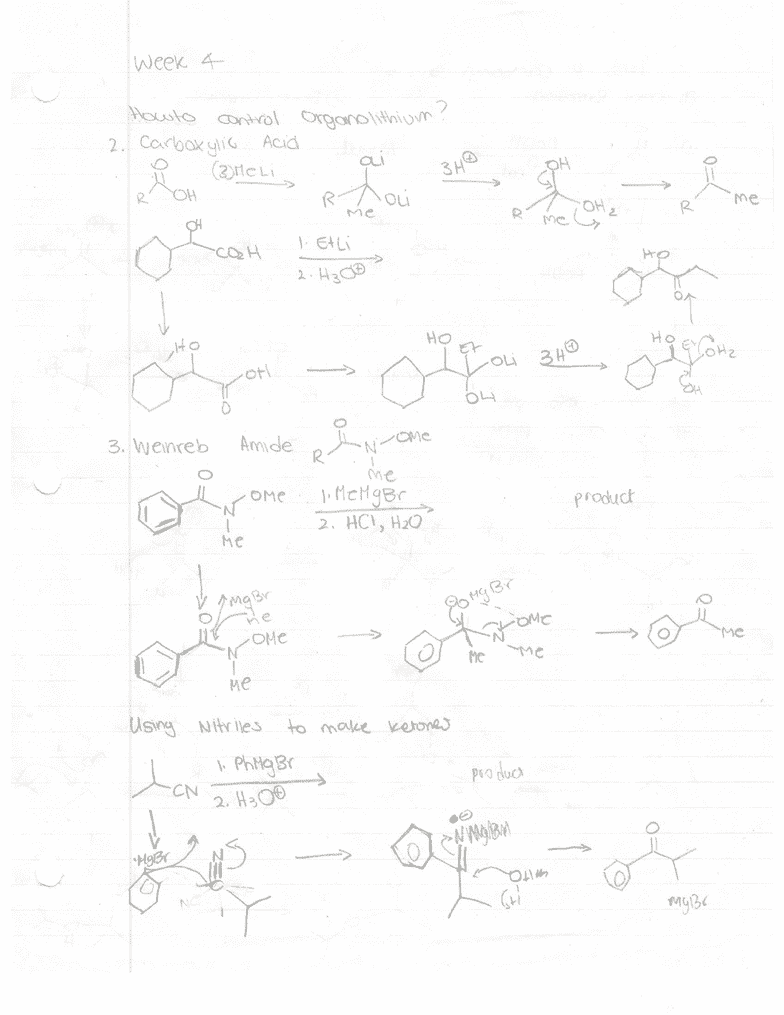 Week 4
How to control Organolithium?
2. Carboxylic Acid
O
R OH (3) MeLi OLi R OLi Me 3H⊕ OH R Me OH2 O R Me
OH CO2H 1. EtLi
2. H3O⊕
HO O
HO OH O HO Et OLi OLi 3H⊕ HO Et OH2 OH
3. Weinreb Amide O R N OMe Me
O N OMe Me 1. MeMgBr product
2. HCl, H2O
MgBr Me
O N OMe Me ⊖O MgBr OMe N Me Me O Me
Using Nitriles to make ketones
CN 1. PhMgBr product
2. H3O⊕
MgBr N C ⊖ N MgBr O
MgBr